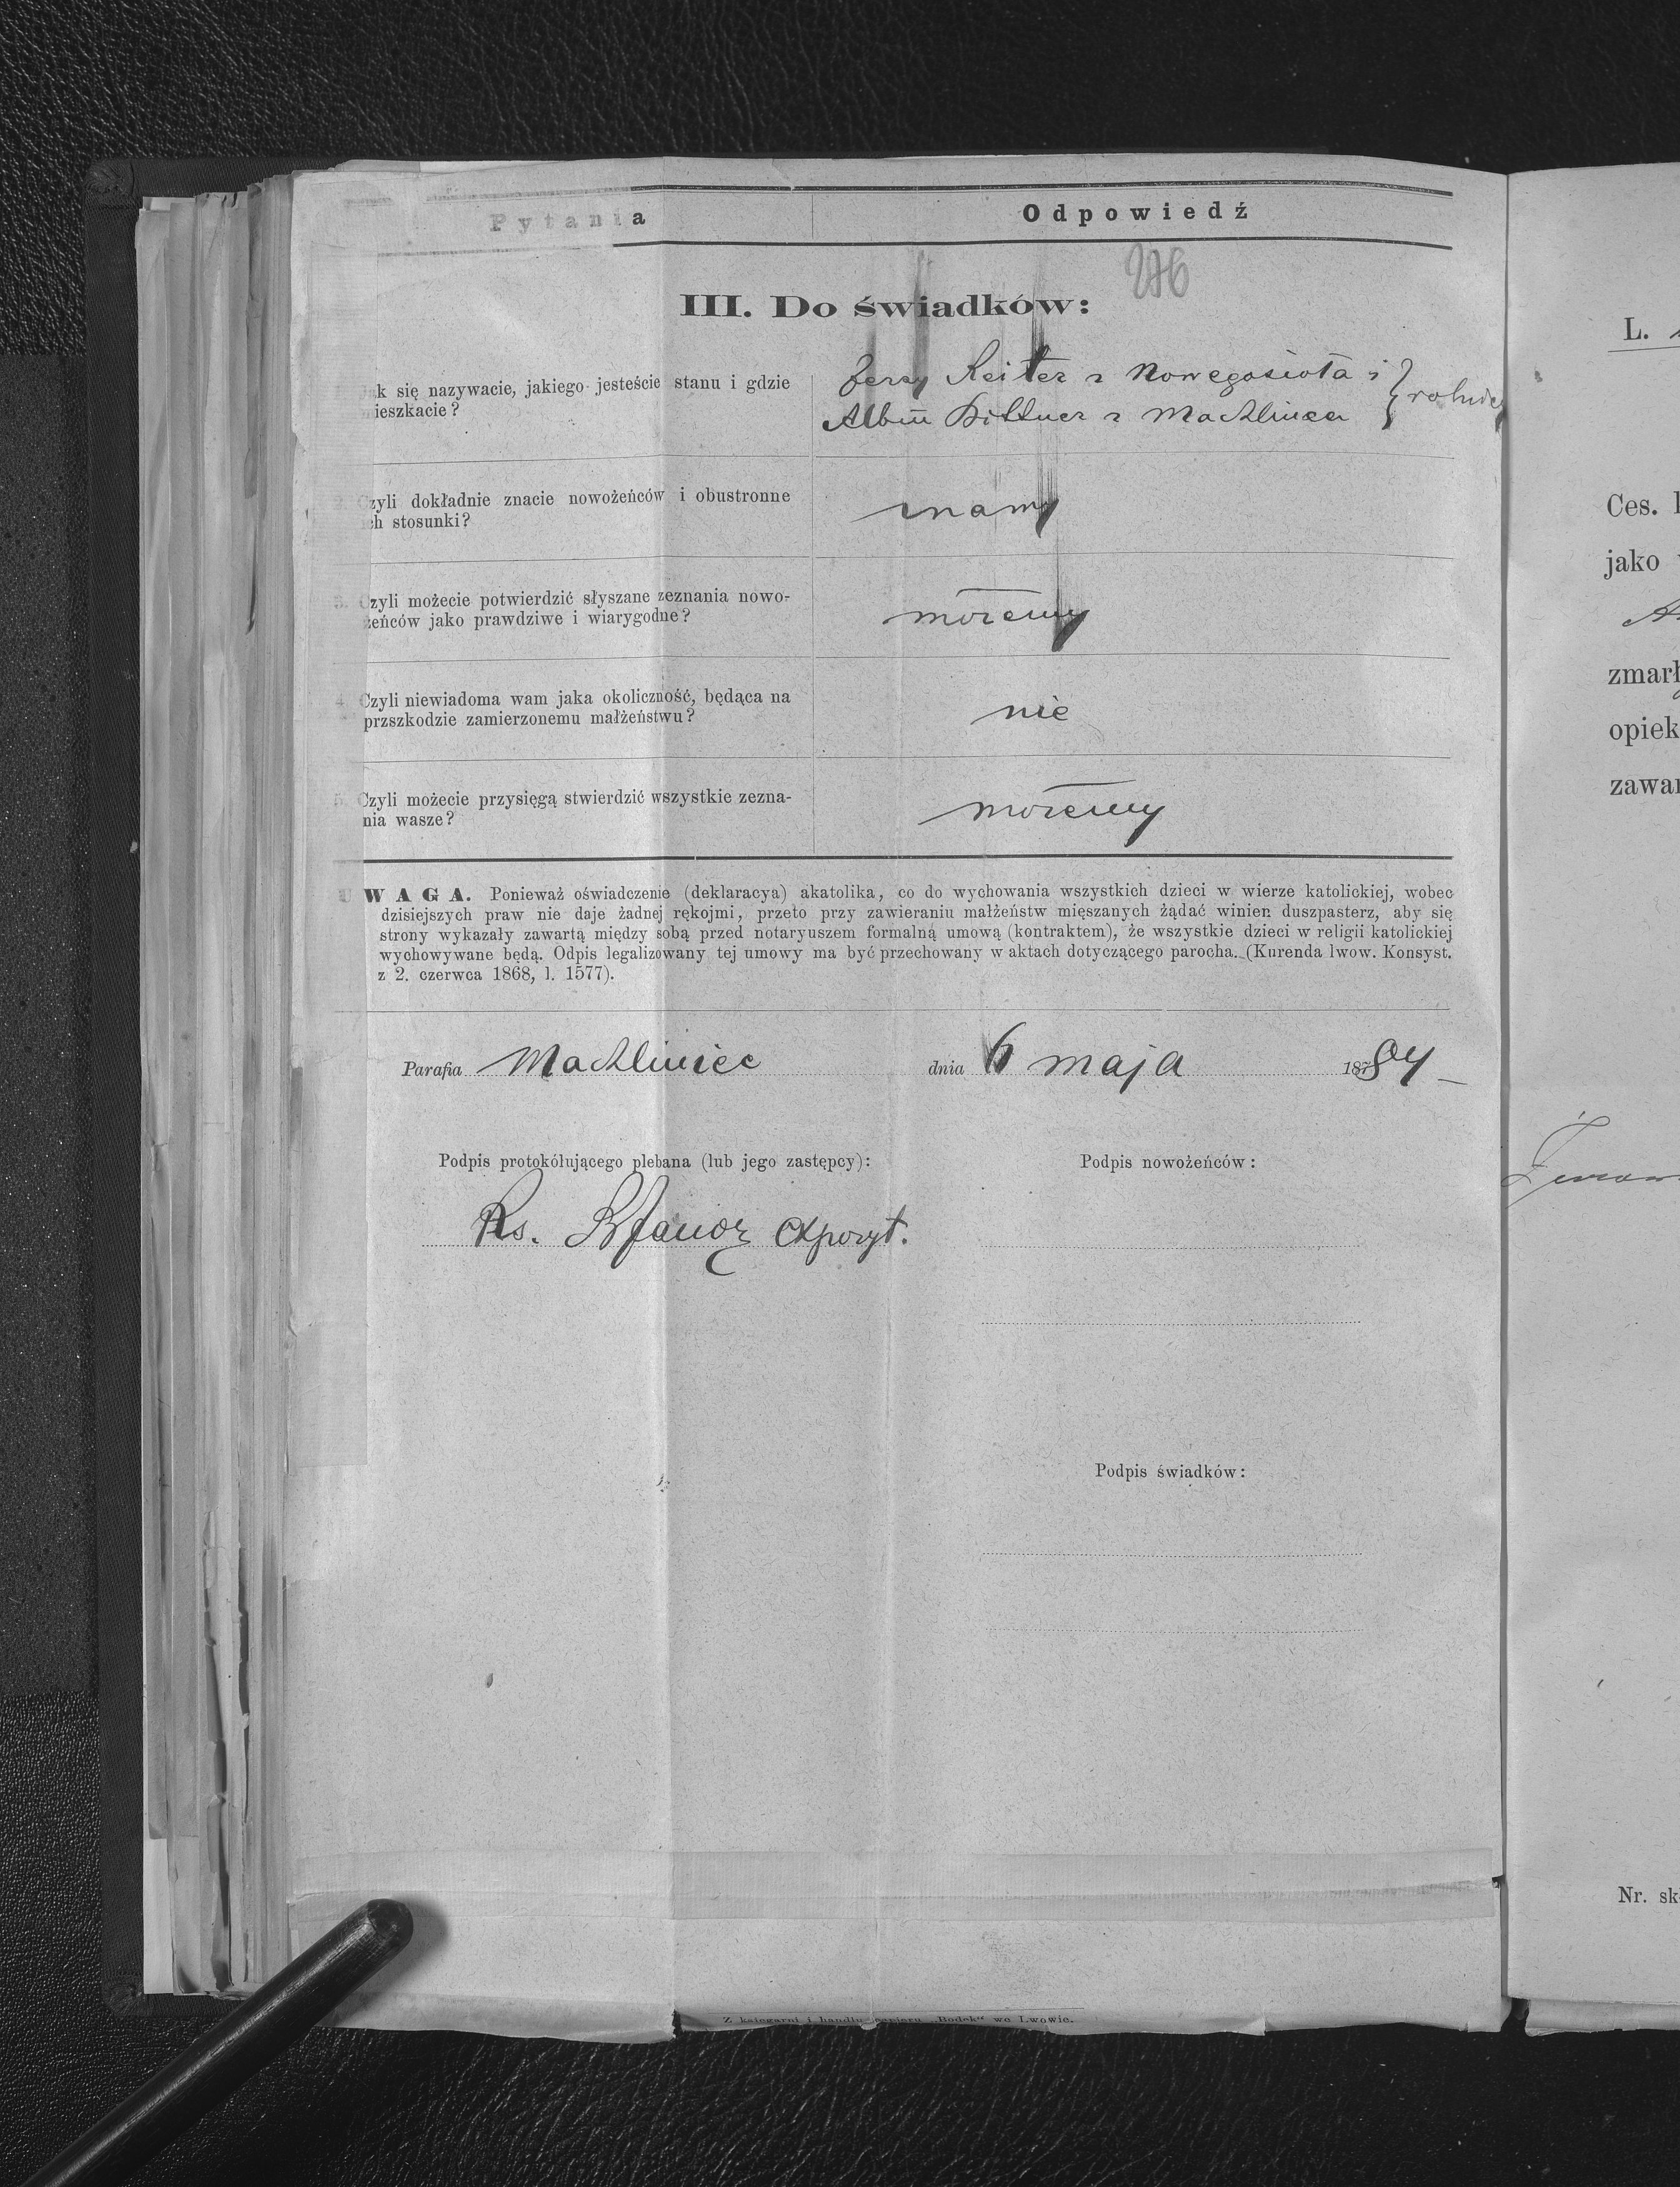 Pytania
Odpowiedź
276
III. Do świadków:
k się nazywacie, jakiego jesteście stanu i gdzie
ieszkacie?
Jerzy Reiter z Nowegosioła i
Albin Bittner z Machlińca } rolnicy
2. Czyli dokładnie znacie nowożeńców i obustronne
ich stosunki?
znamy
3. Czyli możecie potwierdzić słyszane zeznania nowo-
żeńców jako prawdziwe i wiarygodne?
możemy
4. Czyli niewiadoma wam jaka okoliczność, będąca na
przszkodzie zamierzonemu małżeństwu?
nie
5. Czyli możecie przysięgą stwierdzić wszystkie zezna-
nia wasze?
możemy
UWAGA. Ponieważ oświadczenie (deklaracya) akatolika, co do wychowania wszystkich dzieci w wierze katolickiej, wobec
dzisiejszych praw nie daje żadnej rękojmi, przeto przy zawieraniu małżeństw mięszanych żądać winien duszpasterz, aby się
strony wykazały zawartą między sobą przed notaryuszem formalną umową (kontraktem), że wszystkie dzieci w religii katolickiej
wychowywane będą. Odpis legalizowany tej umowy ma być przechowany w aktach dotyczącego parocha. (Kurenda lwow. Konsyst.
z 2. czerwca 1868, l. 1577).
Parafia Machliniec dnia 6 maja 1884
Podpis protokółującego plebana (lub jego zastępcy):
Podpis nowożeńców:
Ks. expozyt.
Podpis świadków:
Z księgarni i handlu papieru „Bodek“ we Lwowie.
L.
Ces.
jako
zmarł
opiek
zawar
Nr. sk